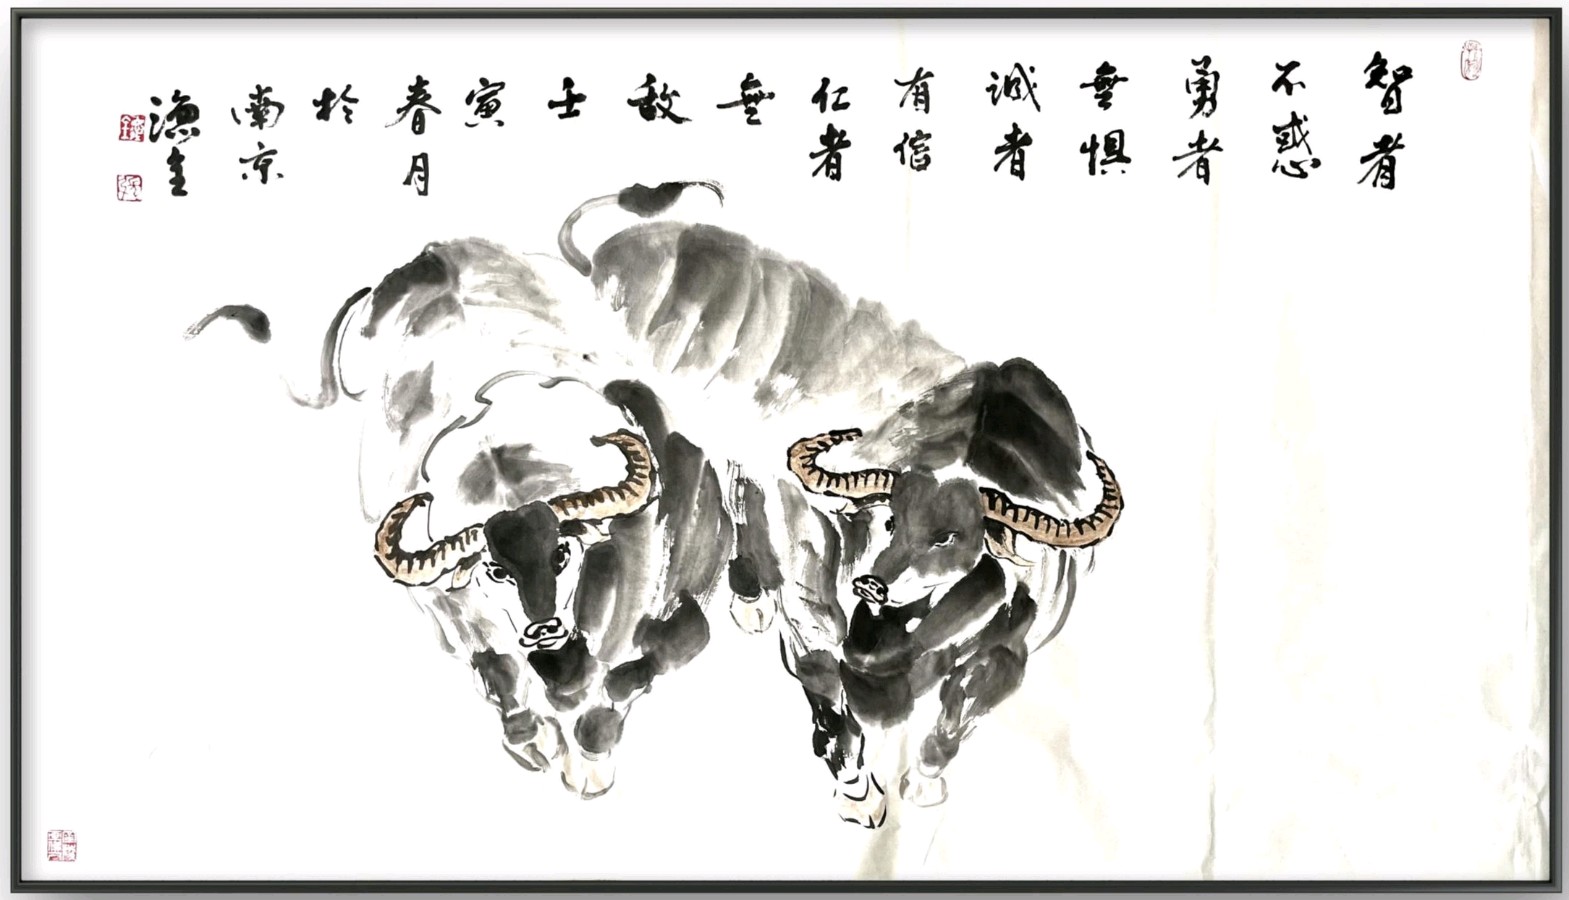 智者
不惑
勇者
無惧
诚者
有信
仁者
無
敌
壬
寅
春月
於
南京